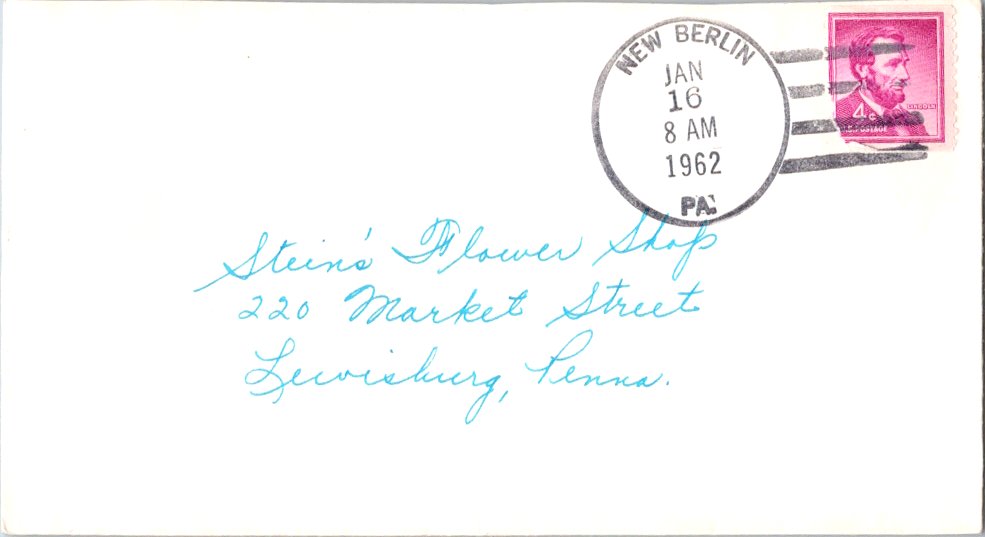 NEW BERLIN
JAN
16
8 AM
1962
PA.
LINCOLN
4¢
U.S. POSTAGE
Stein's Flower Shop
220 Market Street
Lewisburg, Penna.